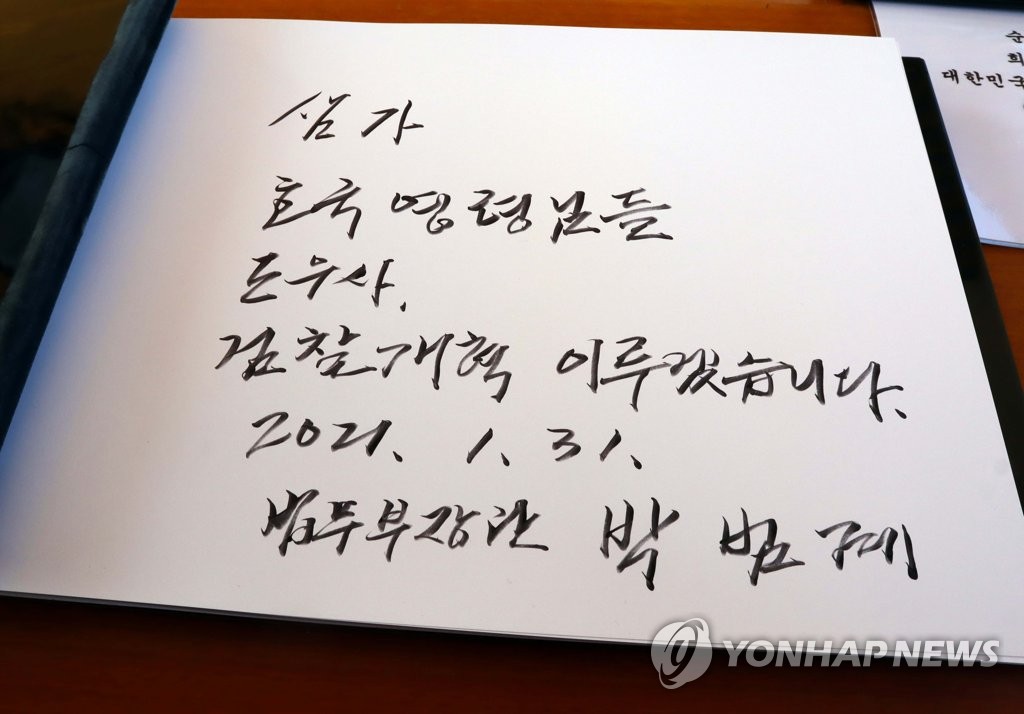 삼가
호국영령님들
도우사.
검찰개혁 이루겠습니다.
2021. 1. 31.
법무부장관 박범계
순
희
대한민국
YONHAP NEWS